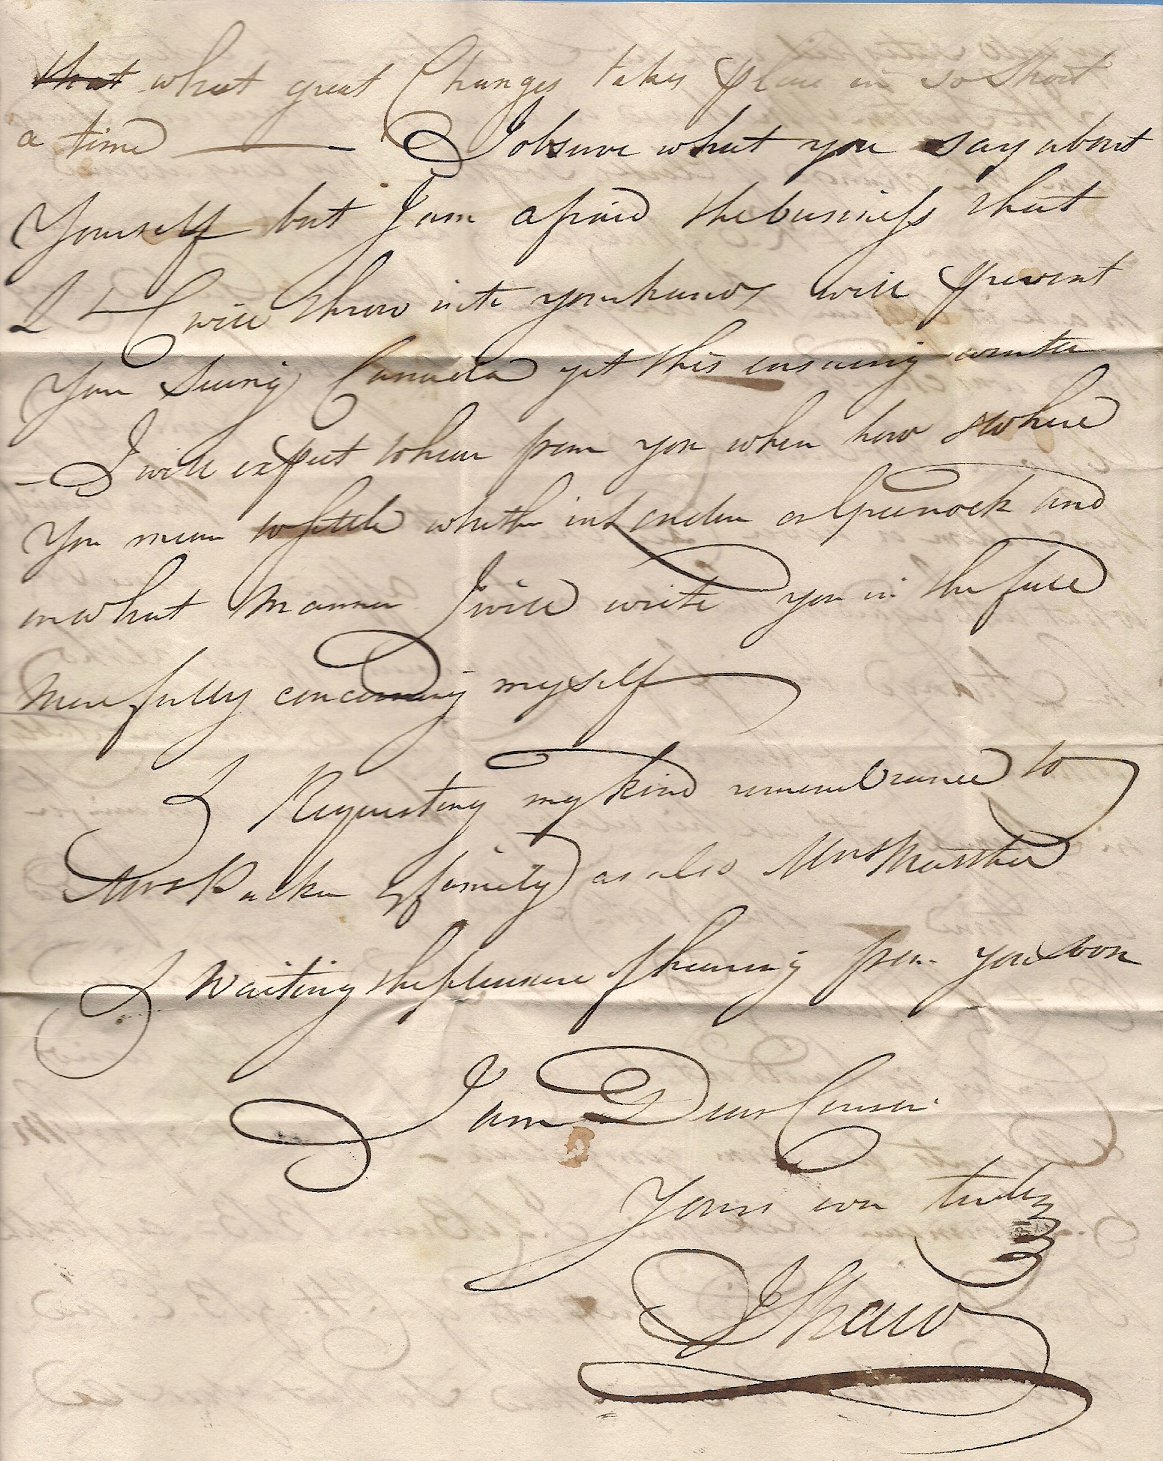 that what great Changes takes place in so Short
a time — I observe what you say about
Yourself but I am afraid the business that
I & C will throw into your hands will prevent
you Seeing Canada yet this ensuing winter
— I will expect to hear from you when how & where
you mean to settle whether in London or Greenock and
in what manner I will write you in the full
more fully concerning myself
Requesting my kind remembrance to
Mrs Parker & family as also Mrs
Waiting the pleasure of hearing from you soon
I am Dear Cousin
Yours ever truly
J Shaw